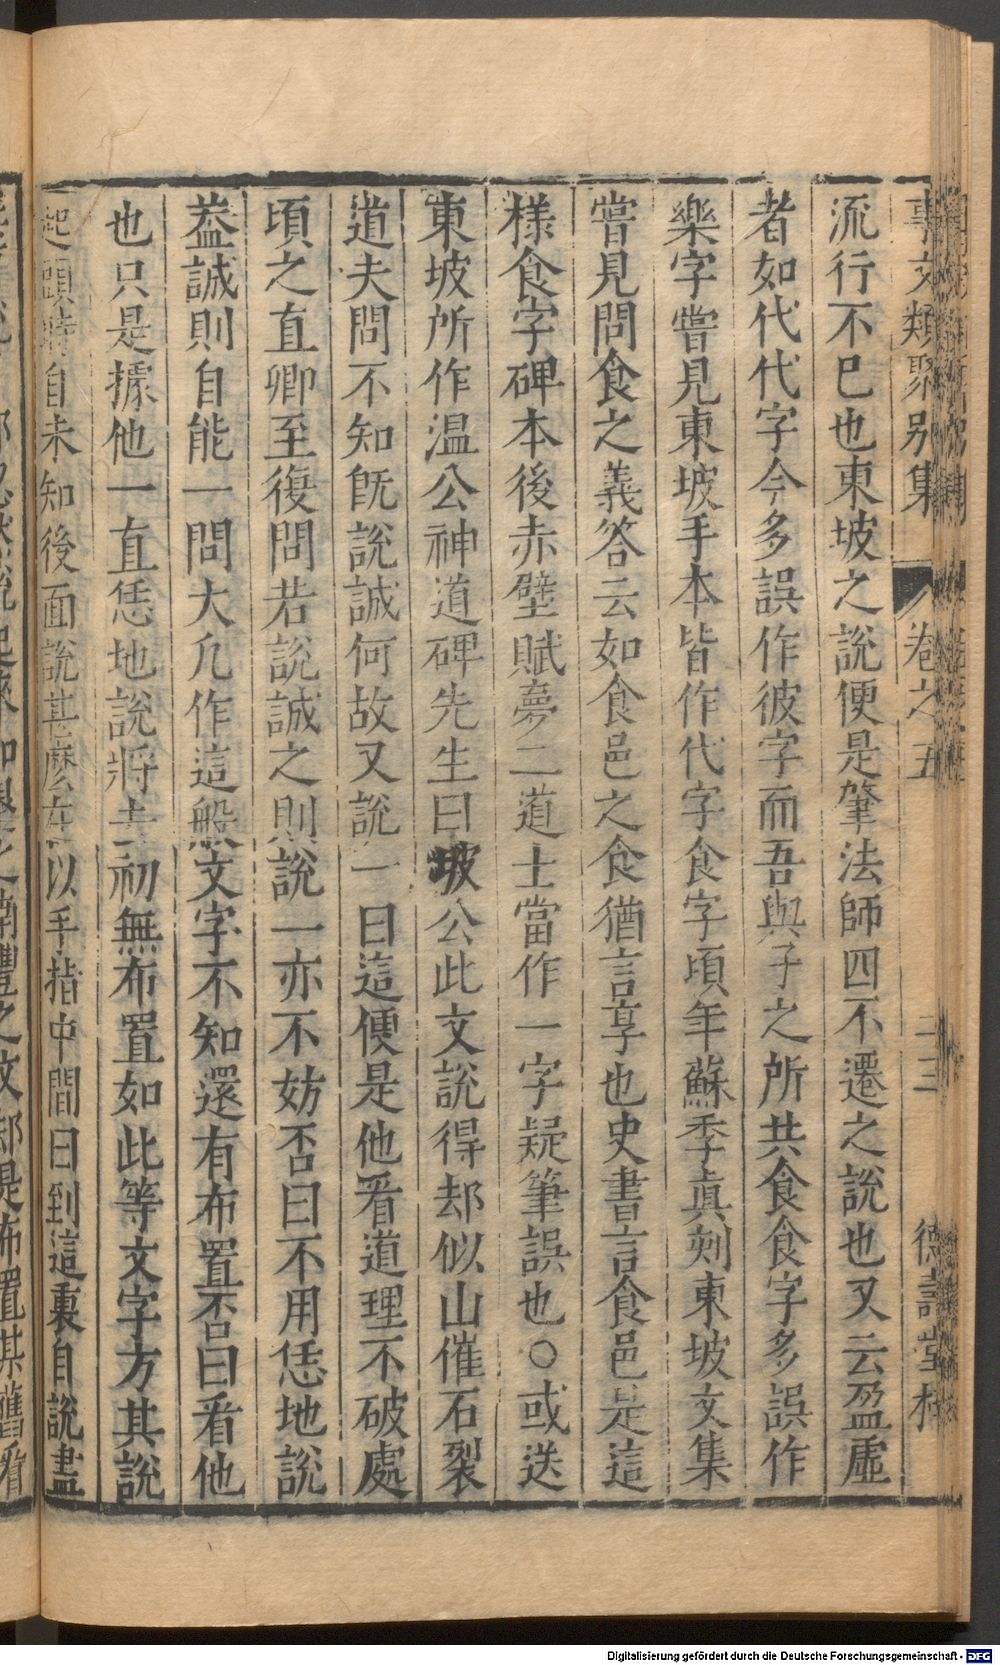 事文類聚別集 卷之五 二三 德壽堂梓
流行不已也東坡之說便是肇法師四不遷之說也又云盈虛
者如代代字今多誤作彼字而吾與子之所共食食字多誤作
樂字嘗見東坡手本皆作代字食字頃年蘇季眞刻東坡文集
嘗見問食之義答云如食邑之食猶言享也史書言食邑是這
樣食字碑本後赤壁賦夢二道士當作一字疑筆誤也○或送
東坡所作温公神道碑先生曰坡公此文說得却似山催石裂
道夫問不知旣說誠何故又說一曰這便是他看道理不破處
頃之直卿至復問若說誠之則說一亦不妨否曰不用恁地說
葢誠則自能一問大凡作這般文字不知還有布置否曰看他
也只是據他一直恁地說將去初無布置如此等文字方其說
起頭時自未知後面說甚麼在以手指中間曰到這裏自說盡
Digitalisierung gefördert durch die Deutsche Forschungsgemeinschaft - DFG